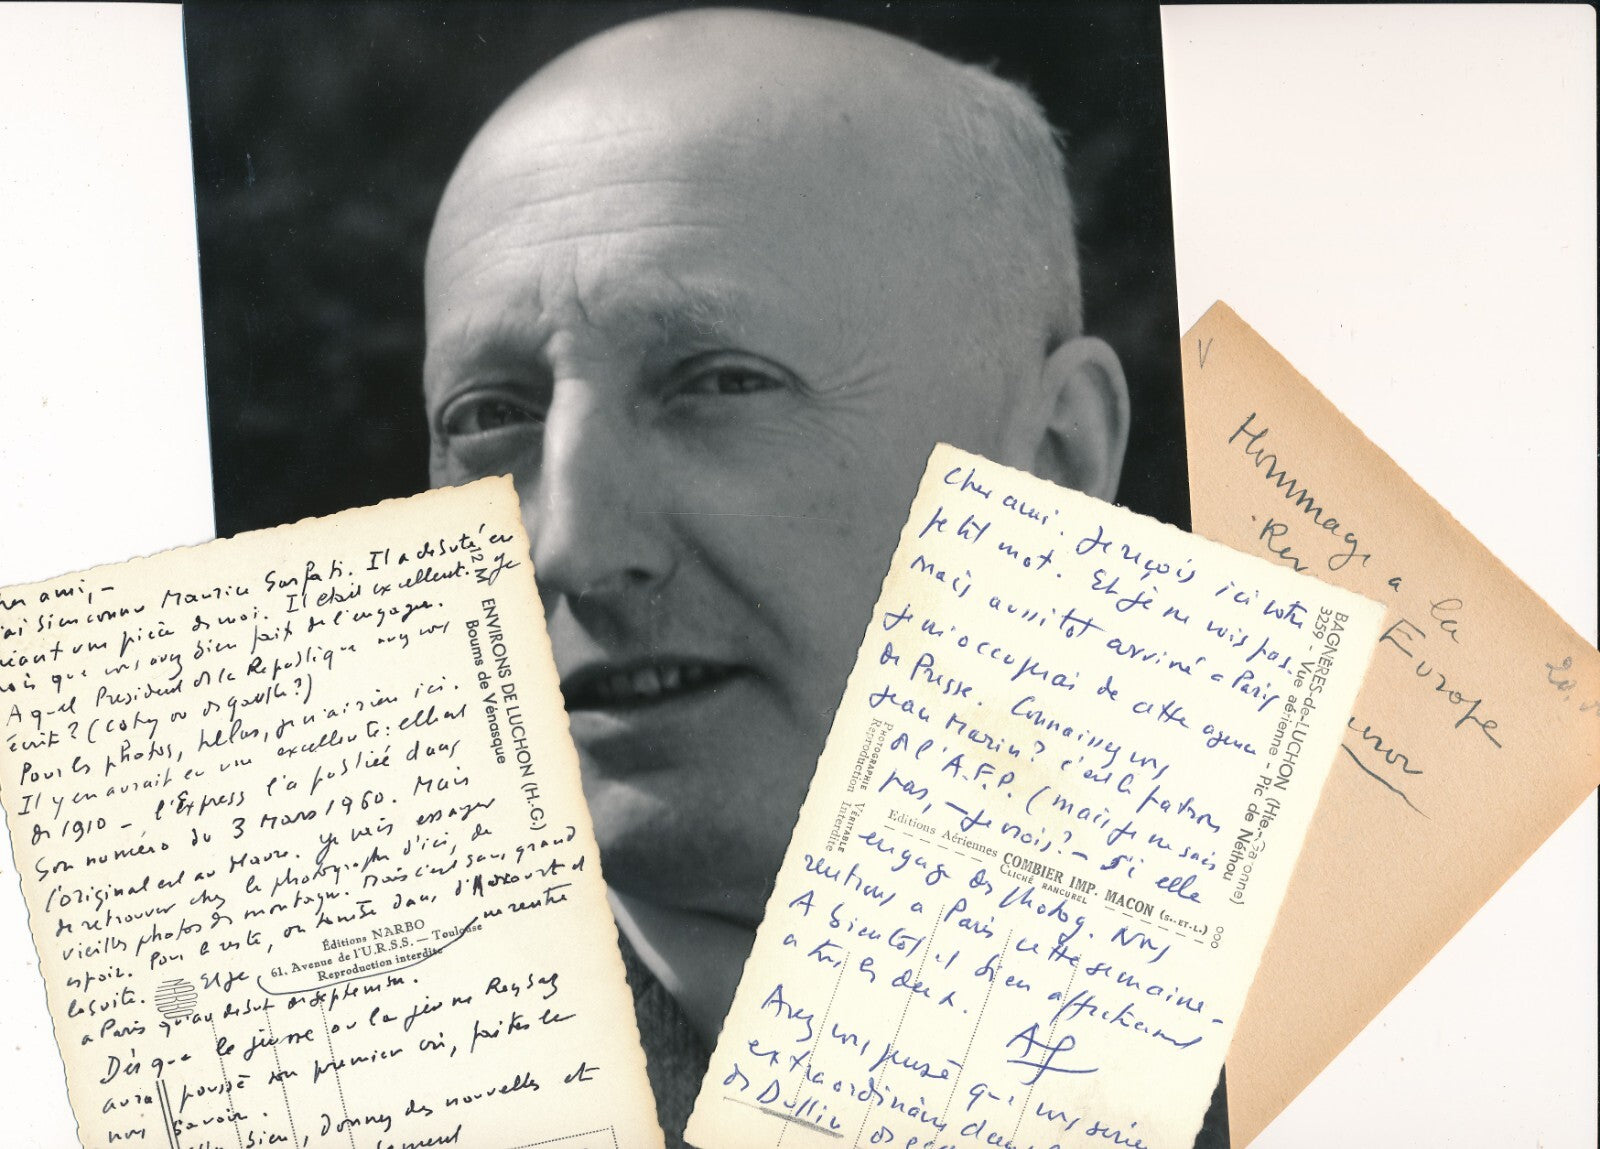 ami, –
bien connu Maurice Sarfati. Il a débuté en
jouant une pièce de moi. Il était excellent. Je
crois que vous avez bien fait de l'engager.
A quel Président de la République avez vous
écrit ? (Coty ou de Gaulle ?)
Pour les photos, hélas, je n'ai rien ici.
Il y en aurait eu une excellente : elle est
de 1910 – l'Express l'a publiée dans
son numéro du 3 Mars 1960. Mais
l'original est au Havre. Je vais essayer
de retrouver chez le photographe d'ici, de
vieilles photos de montagne. Mais c'est sans grand
espoir. Pour le reste, on tombe dans d'Harcourt et
la suite. Et je ne rentre
a Paris qu'au début de septembre.
Dès que le jeune ou la jeune Rey
aura poussé son premier cri, faites le
nous savoir.
bien, donnez des nouvelles et
12 M ENVIRONS DE LUCHON (H.-G.)
Boums de Vénasque
Éditions NARBO
61, Avenue de l'U.R.S.S. — Toulouse
Reproduction interdite
NARBO
Cher ami. Je reçois ici votre
petit mot. Et je ne vois pas.
Mais aussitot arrivé a Paris
je m'occuperai de cette agence
de Presse. Connaissez vous
Jean Marin ? C'est le patron
de l'A.F.P. (mais je ne sais
pas, – je crois ? – si elle
engage des photog. Nous
rentrons a Paris cette semaine –
A bientôt et bien affectueusement
a tous les deux.
AS
Avez vous pensé que vous seriez
extraordinaire dans
de Dullin
BAGNÈRES-de-LUCHON (Hte-Garonne)
3259 - Vue aérienne - Pic de Néthou
PHOTOGRAPHIE VÉRITABLE
Reproduction Interdite
Editions Aériennes COMBIER IMP. MACON (S.-ET-L.)
CLICHÉ RANCUREL
V
Hommage a la
Europe